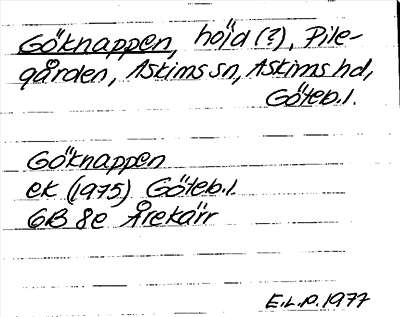 Göknappen, höjd (?), Pile-
gården, Askims sn, Askims hd,
Göteb.l.
Göknappen
ek (1975) Göteb.l.
6B 8e Årekärr
E.L.P. 1977